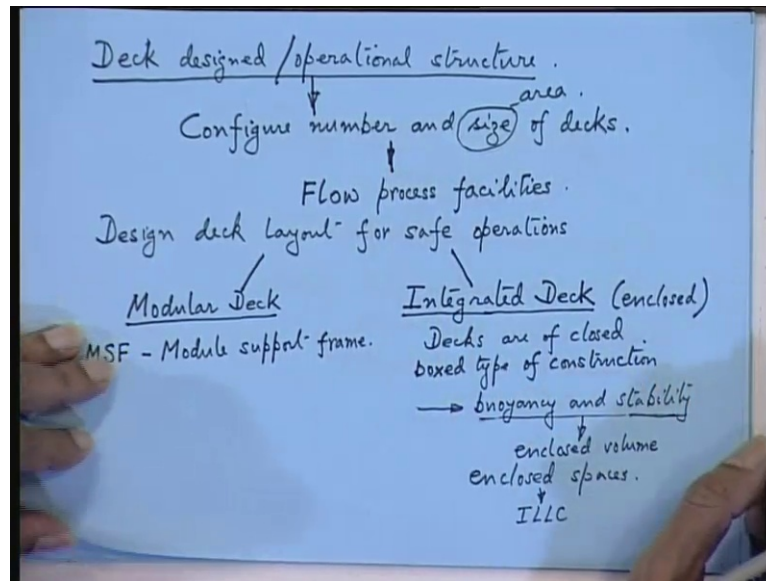 Deck designed/operational structure.
area.
Configure number and size of decks.
Flow process facilities.
Design deck layout for safe operations
Modular Deck
MSF - Module support frame.
Integrated Deck (enclosed)
Decks are of closed
boxed type of construction
buoyancy and stability
enclosed volume
enclosed spaces.
ILLC